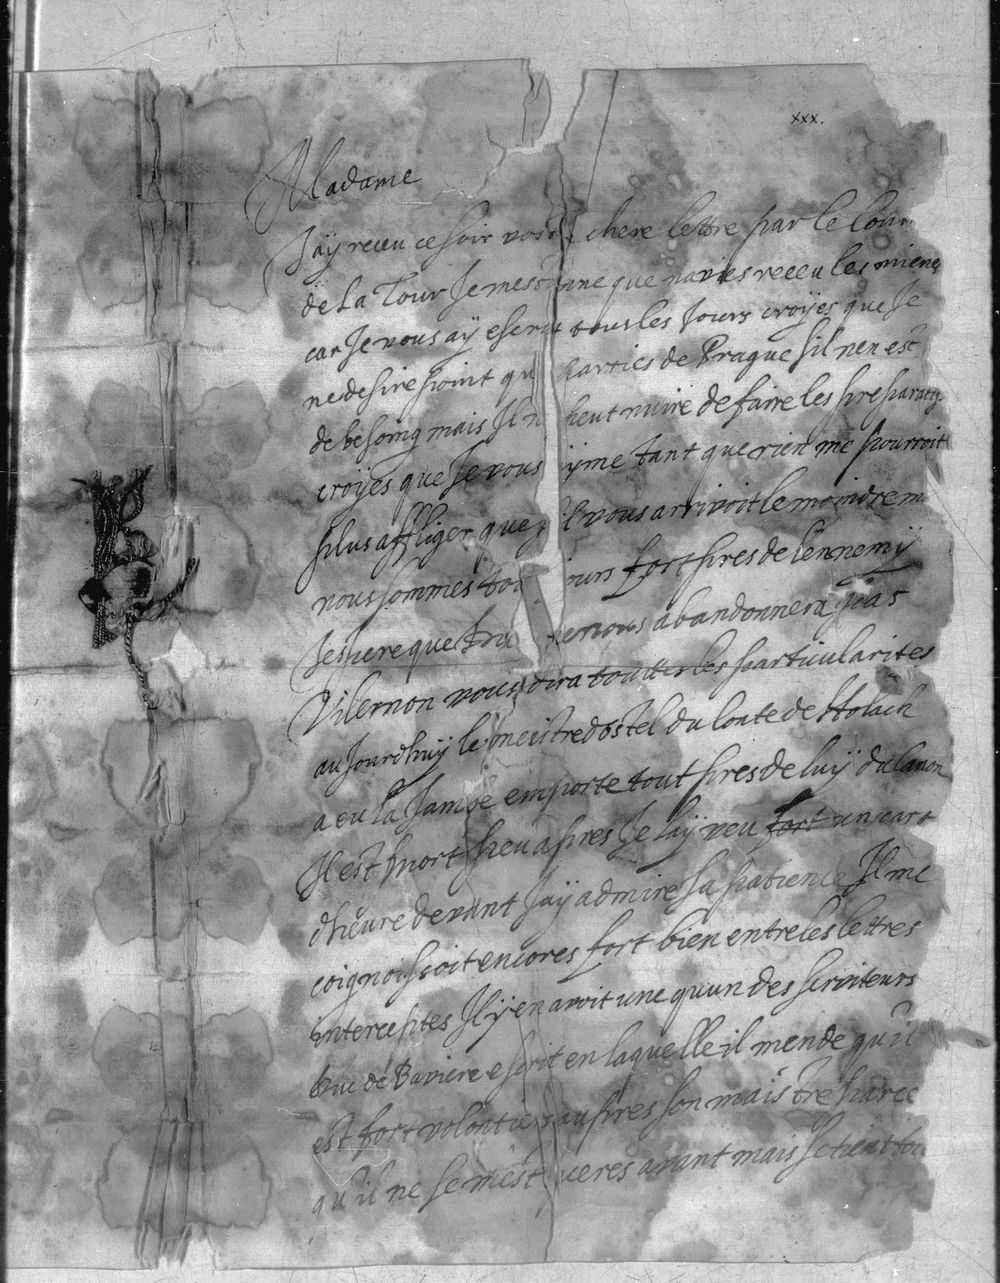 xxx.
Madame
J'aÿ receu ce soir vost chere lettre par le Conr
de La Tour Je mestonne que naviés receu les mienes
car Je vous aÿ escrit tous les Jours croÿes que Je
ne desire point qu parties de Prague sil nen est
de besoing mais Il n peut nuire de faire les preparatifs
croÿes que Je vous ÿme tant que rien me pourroit
plus affliger que sil vous arrivoit le moindre m
nous sommes tou iours fort pres de lennemÿ
Jespere que nous abandonnera pas
Vilernon vous dira touttes les particularites
auJourdhuÿ le meistredostel du Conte de Holach
a eu la Jambe emporté tout pres de luÿ du Canon
Il est mort peu apres Je laÿ veu fort un cart
dheure devant Jaÿ admiré sa patience Il me
coignoissoit encores fort bien entre les lettres
interceptes Il ÿ en avoit une quun des serviteurs
Duc de Baviere escrit en laquelle il mende qu'il
est fort volontiers aupres son maistre parce
qu'il ne se mest ceres avant mais se tient tou